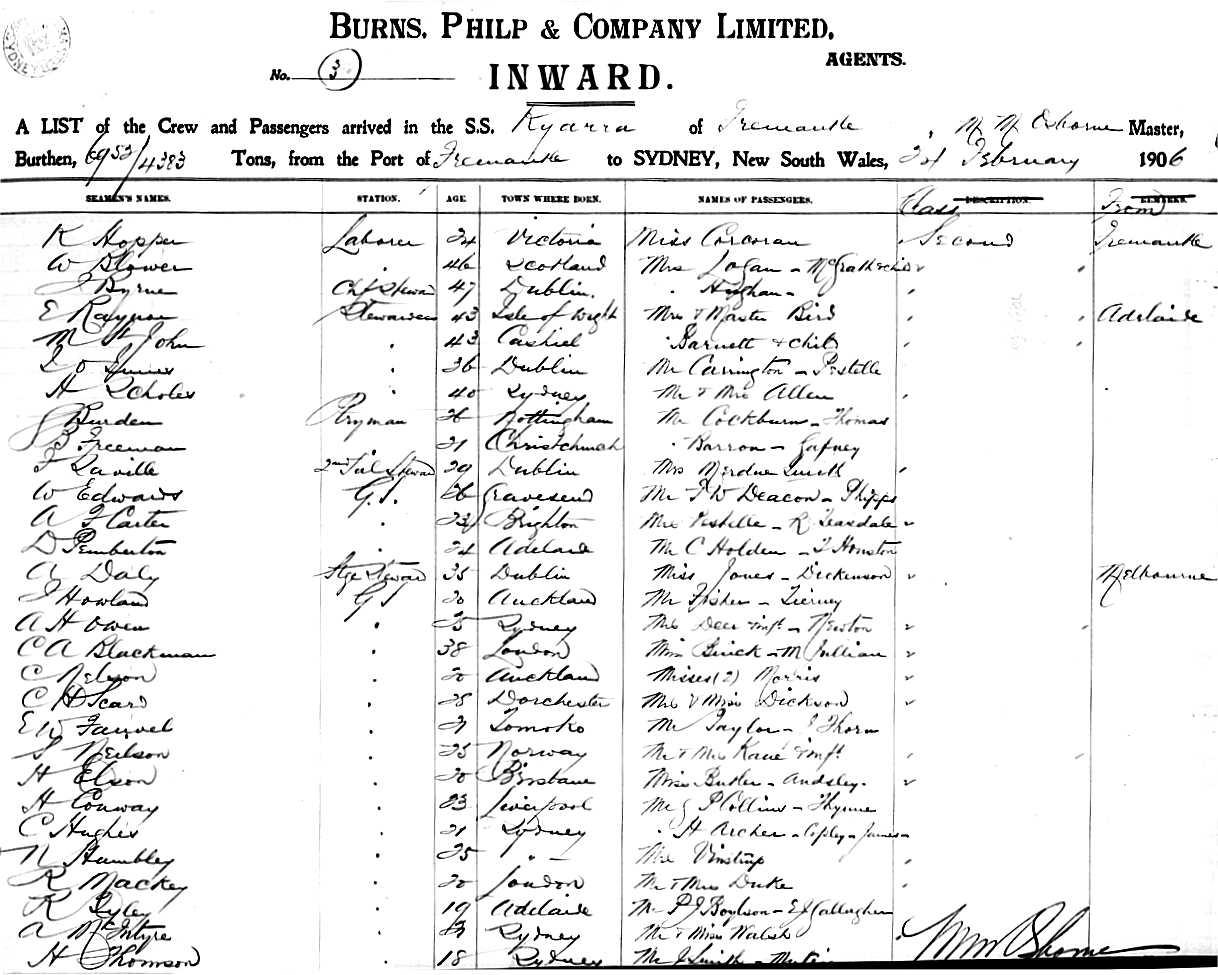 BURNS, PHILP & COMPANY LIMITED,
AGENTS.
No. 3
INWARD.
A LIST of the Crew and Passengers arrived in the S.S. Kyarra of Fremantle, M M Osborne Master,
Burthen, 6953/4383 Tons, from the Port of Fremantle to SYDNEY, New South Wales, February 1906
SEAMEN'S NAMES. STATION. AGE TOWN WHERE BORN. NAMES OF PASSENGERS. Class DESCRIPTION. From REMARKS.
K Hopper Laborer 24 Victoria Miss Corcoran Second Fremantle
W Blower " 46 Scotland Mrs Logan - McGrath & child
J Byrne Chf Steward 47 Dublin. " Hughan -
E Raynor Stewardess 43 Isle of Wight Mrs & Master Bird Adelaide
M St John " 43 Cashel " Barnett & child
36 Dublin Mr Carrington - Pestelle
H Scholes " 40 Sydney Mr & Mrs Allen
J Burden Ptryman 26 Nottingham Mr Cockburn - Thomas
J Freeman 21 Christchurch " Barron - Gafney
F Saville 2nd Sal Steward 29 Dublin Mrs Smith
W Edwards G.S. 26 Gravesend Mr F W Deacon - Phipps
A F Carter " 23 Brighton Mrs Pestelle - R Teasdale
D Pemberton " 24 Adelaide Mr C Holden - T Houston
A Daly Stge Steward 35 Dublin Miss Jones - Dickenson Melbourne
J Howland G S 20 Auckland Mr Fisher - Tierney
A H Owen " 25 Sydney Mrs Deer & inft - Newton
C A Blackman " 38 London Miss - M Jullian
C Nelson " 20 Auckland Misses (2) Morris
C H Scard " 28 Dorchester Mrs & Miss Dickson
E W " 21 Mr Taylor - J Thorn
S Neilson " 25 Norway Mr & Mrs Kane & inft
H Elson " 20 Brisbane Miss Butler - Audsley -
H Conway " 23 Liverpool Mr J P Collins - Thynne
C Hughes " 21 Sydney " H Archer - Copley - James -
N Hambley " 25 " - Mrs Vinstrup
R Mackey " 20 London Mr & Mrs Duke
R Pyley " 19 Adelaide Mr P J Boylson - E J Callaghan
A McIntyre " 21 Sydney Mr & Miss Walsh
H Thomson " 18 Sydney Mr J Smith - Martin
M M Osborne